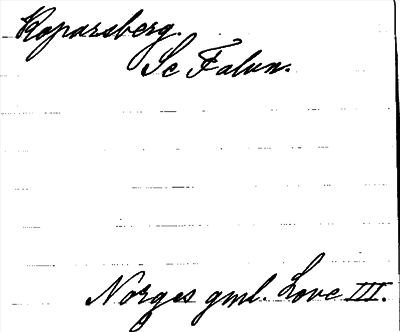 Kopparsberg.
Se Falun.
Norges gml. Love III.